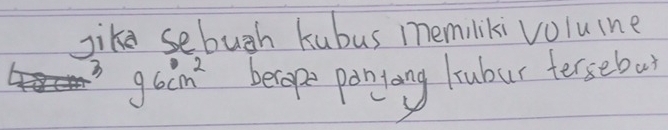 jika sebuah kubus memiliki volume
96cm² berapa panjang kubus tersebut